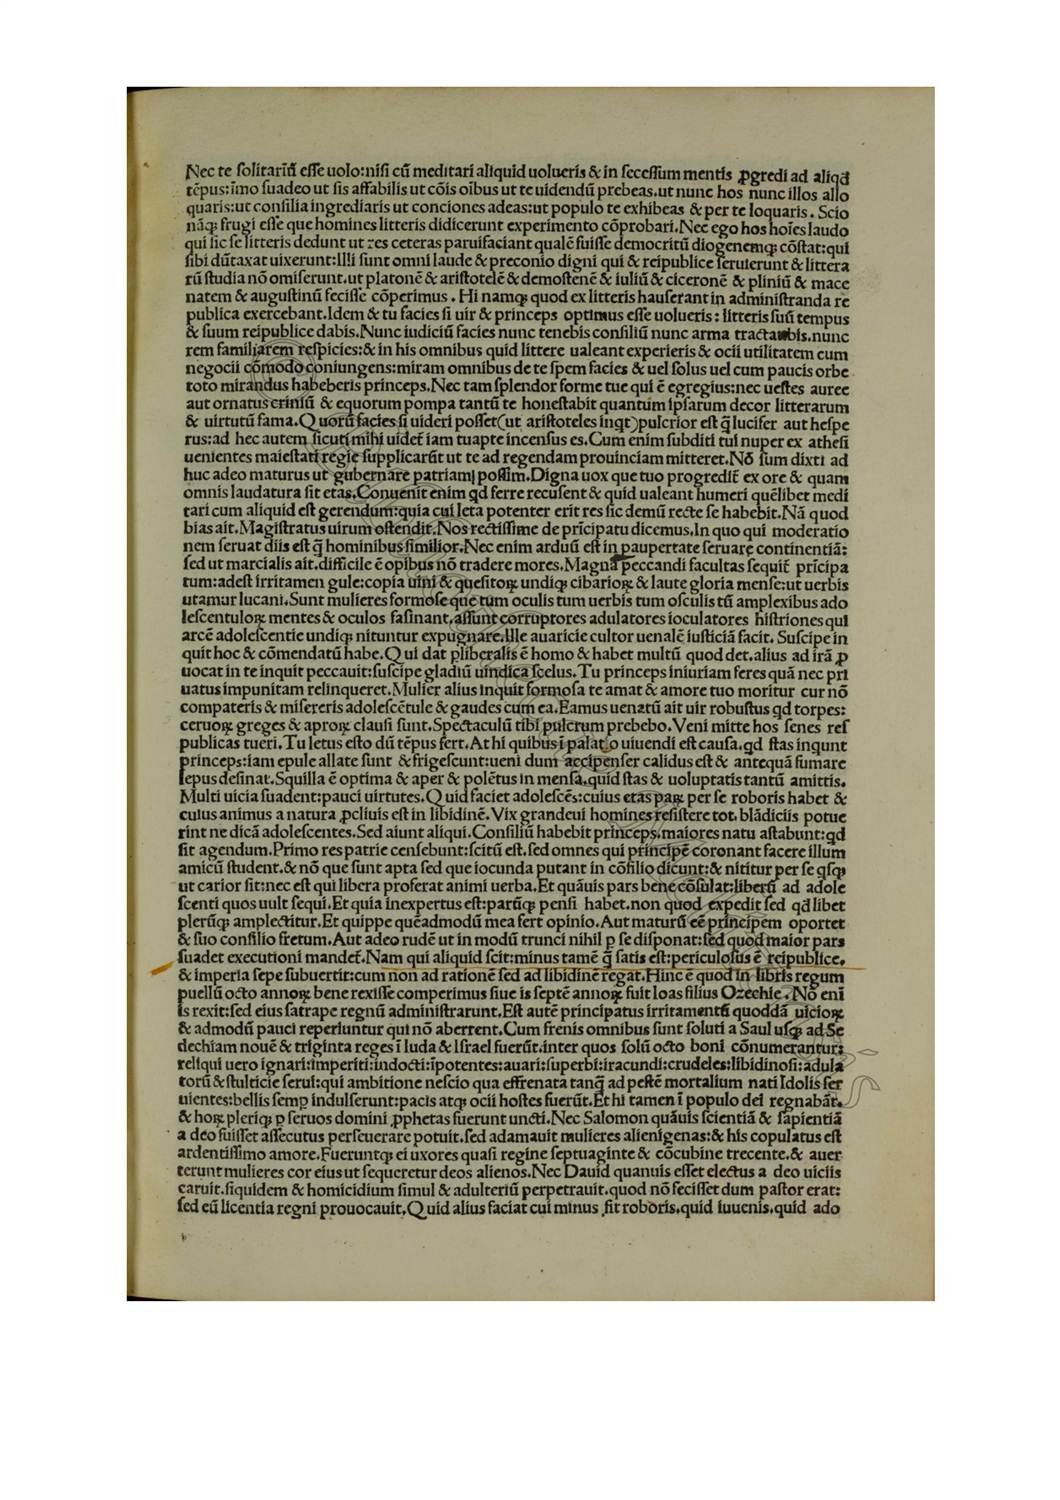 Nec te ſolitariũ eſſe uolo:niſi cũ meditari aliquid uolueris & in ſeceſſum mentis ꝓgredi ad aliqđ
tẽpus:ĩmo ſuadeo ut ſis affabilis ut cõis oĩbus ut te uidendũ prebeas.ut nunc hos nunc illos allo
quaris:ut conſilia ingrediaris ut conciones adeas:ut populo te exhibeas & per te loquaris. Scio
nãqꝫ frugi eſſe que homines litteris didicerunt experimento cõprobari.Nec ego hos hoĩes laudo
qui ſic ſe litteris dedunt ut res ceteras paruifaciant qualẽ fuiſſe democritũ diogenemqꝫ cõſtat:qui
ſibi dũtaxat uixerunt:Illi ſunt omni laude & preconio digni qui & reipublice ſeruierunt & littera
rũ ſtudia nõ omiſerunt.ut platonẽ & ariſtotelẽ & demoſtenẽ & iuliũ & ciceronẽ & pliniũ & mace
natem & auguſtinũ feciſſe cõperimus. Hi namqꝫ quod ex litteris hauſerant in adminiſtranda re
publica exercebant.Idem & tu facies ſi uir & princeps optimus eſſe uolueris: litteris ſuũ tempus
& ſuum reipublice dabis.Nunc iudiciũ facies nunc tenebis conſiliũ nunc arma tractabis.nunc
rem familiarem reſpicies:& in his omnibus quid littere ualeant experieris & ocii utilitatem cum
negocii cõmodo coniungens:miram omnibus de te ſpem facies & uel ſolus uel cum paucis orbe
toto mirandus habeberis princeps.Nec tam ſplendor forme tue qui ẽ egregius:nec ueſtes auree
aut ornatus criniũ & equorum pompa tantũ te honeſtabit quantum ipſarum decor litterarum
& uirtutũ fama.Quorũ facies ſi uideri poſſet(ut ariſtoteles inqt)pulcrior eſt q̃ lucifer aut heſpe
rus:ad hec autem ſicuti mihi uidet̃ iam tuapte incenſus es.Cum enim ſubditi tui nuper ex atheſi
uenientes maieſtati regie ſupplicarũt ut te ad regendam prouinciam mitteret.Nõ ſum dixti ad
huc adeo maturus ut gubernare patriam poſſim.Digna uox que tuo progredit̃ ex ore & quam
omnis laudatura ſit etas.Conuenit enim qđ ferre recuſent & quid ualeant humeri quẽlibet medi
tari cum aliquid eſt gerendum:quia cui leta potenter erit res ſic demũ recte ſe habebit.Nã quod
bias ait.Magiſtratus uirum oſtendit.Nos rectiſſime de prĩcipatu dicemus.In quo qui moderatio
nem ſeruat diis eſt q̃ hominibus ſimilior.Nec enim arduũ eſt in paupertate ſeruare continentiã:
ſed ut marcialis ait.difficile ẽ opibus nõ tradere mores.Magna peccandi facultas ſequit̃ prĩcipa
tum:adeſt irritamen gule:copia uini & queſitoꝝ undiqꝫ cibarioꝝ & laute gloria menſe:ut uerbis
utamur lucani.Sunt mulieres formoſe que tum oculis tum uerbis tum oſculis tũ amplexibus ado
leſcentuloꝝ mentes & oculos faſinant.aſſunt corruptores adulatores ioculatores hiſtriones qui
arcẽ adoleſcentie undiqꝫ nituntur expugnare.Ille auaricie cultor uenalẽ iuſticiã facit. Suſcipe in
quit hoc & cõmendatũ habe.Qui dat ꝑliberalis ẽ homo & habet multũ quod det.alius ad irã ꝓ
uocat in te inquit peccauit:ſuſcipe gladiũ uindica ſcelus.Tu princeps iniuriam feres quã nec pri
uatus impunitam relinqueret.Mulier alius inquit formoſa te amat & amore tuo moritur cur nõ
compateris & miſereris adoleſcẽtule & gaudes cum ea.Eamus uenatũ ait uir robuſtus qđ torpes:
ceruoꝝ greges & aproꝝ clauſi ſunt.Spectaculũ tibi pulcrum prebebo.Veni mitte hos ſenes reſ
publicas tueri.Tu letus eſto dũ tẽpus fert.At hi quibus ĩ palatio uiuendi eſt cauſa.qđ ſtas inqunt
princeps:iam epule allate ſunt & frigeſcunt:ueni dum accipenſer calidus eſt & antequã ſumare
lepus deſinat.Squilla ẽ optima & aper & polẽtus in menſa.quid ſtas & uoluptatis tantũ amittis.
Multi uicia ſuadent:pauci uirtutes.Quid faciet adoleſcẽs:cuius etas paꝝ per ſe roboris habet &
cuius animus a natura ꝓcliuis eſt in libidinẽ.Vix grandeui homines reſiſtere tot blãdiciis potue
rint ne dicã adoleſcentes.Sed aiunt aliqui.Conſiliũ habebit princeps.maiores natu aſtabunt:qđ
ſit agendum.Primo res patrie cenſebunt:ſcitũ eſt.ſed omnes qui principẽ coronant facere illum
amicũ ſtudent.& nõ que ſunt apta ſed que iocunda putant in cõſilio dicunt:& nititur per ſe qſqꝫ
ut carior ſit:nec eſt qui libera proferat animi uerba.Et quãuis pars bene cõſulat:liberũ ad adole
ſcenti quos uult ſequi.Et quia inexpertus eſt:parũqꝫ penſi habet.non quod expedit ſed qđ libet
plerũqꝫ amplectitur.Et quippe quẽadmodũ mea fert opinio.Aut maturũ eẽ principem oportet
& ſuo conſilio fretum.Aut adeo rudẽ ut in modũ trunci nihil ꝑ ſe diſponat:ſed quod maior pars
ſuadet executioni mandet.Nam qui aliquid ſcit:minus tamẽ q̃ ſatis eſt:periculoſus ẽ reipublice.
& imperia ſepe ſubuertit:cum non ad rationẽ ſed ad libidinẽ regat.Hinc ẽ quod in libris regum
puellũ octo annoꝝ bene rexiſſe comperimus ſiue is ſeptẽ annoꝝ fuit Ioas filius Ozechie.Nõ enĩ
is rexit:ſed eius ſatrape regnũ adminiſtrarunt.Eſt autẽ principatus irritamentũ quoddã uicioꝝ
& admodũ pauci reperiuntur qui nõ aberrent.Cum frenis omnibus ſunt ſoluti a Saul uſqꝫ ad Se
dechiam nouẽ & triginta reges ĩ Iuda & Iſrael fuerũt.inter quos ſolũ octo boni cõnumerantur:
reliqui uero ignari:imperiti:indocti:ĩpotentes:auari:ſuperbi:iracundi:crudeles:libidinoſi:adula
torũ & ſtulticie ſerui:qui ambitione neſcio qua effrenata tanq̃ ad peſtẽ mortalium nati Idolis ſer
uientes:bellis ſemꝑ indulſerunt:pacis atqꝫ ocii hoſtes fuerũt.Et hi tamen ĩ populo dei regnabãt.
& hoꝝ pleriqꝫ ꝑ ſeruos domini ꝓphetas fuerunt uncti.Nec Salomon quãuis ſcientiã & ſapientiã
a deo fuiſſet aſſecutus perſeuerare potuit.ſed adamauit mulieres alienigenas:& his copulatus eſt
ardentiſſimo amore.Fueruntqꝫ ei uxores quaſi regine ſeptuaginte & cõcubine trecente.& auer
terunt mulieres cor eius ut ſequeretur deos alienos.Nec Dauid quanuis eſſet electus a deo uiciis
caruit.ſiquidem & homicidium ſimul & adulteriũ perpetrauit.quod nõ feciſſet dum paſtor erat:
ſed eũ licentia regni prouocauit.Quid alius faciat cui minus ſit roboris.quid iuuenis.quid ado